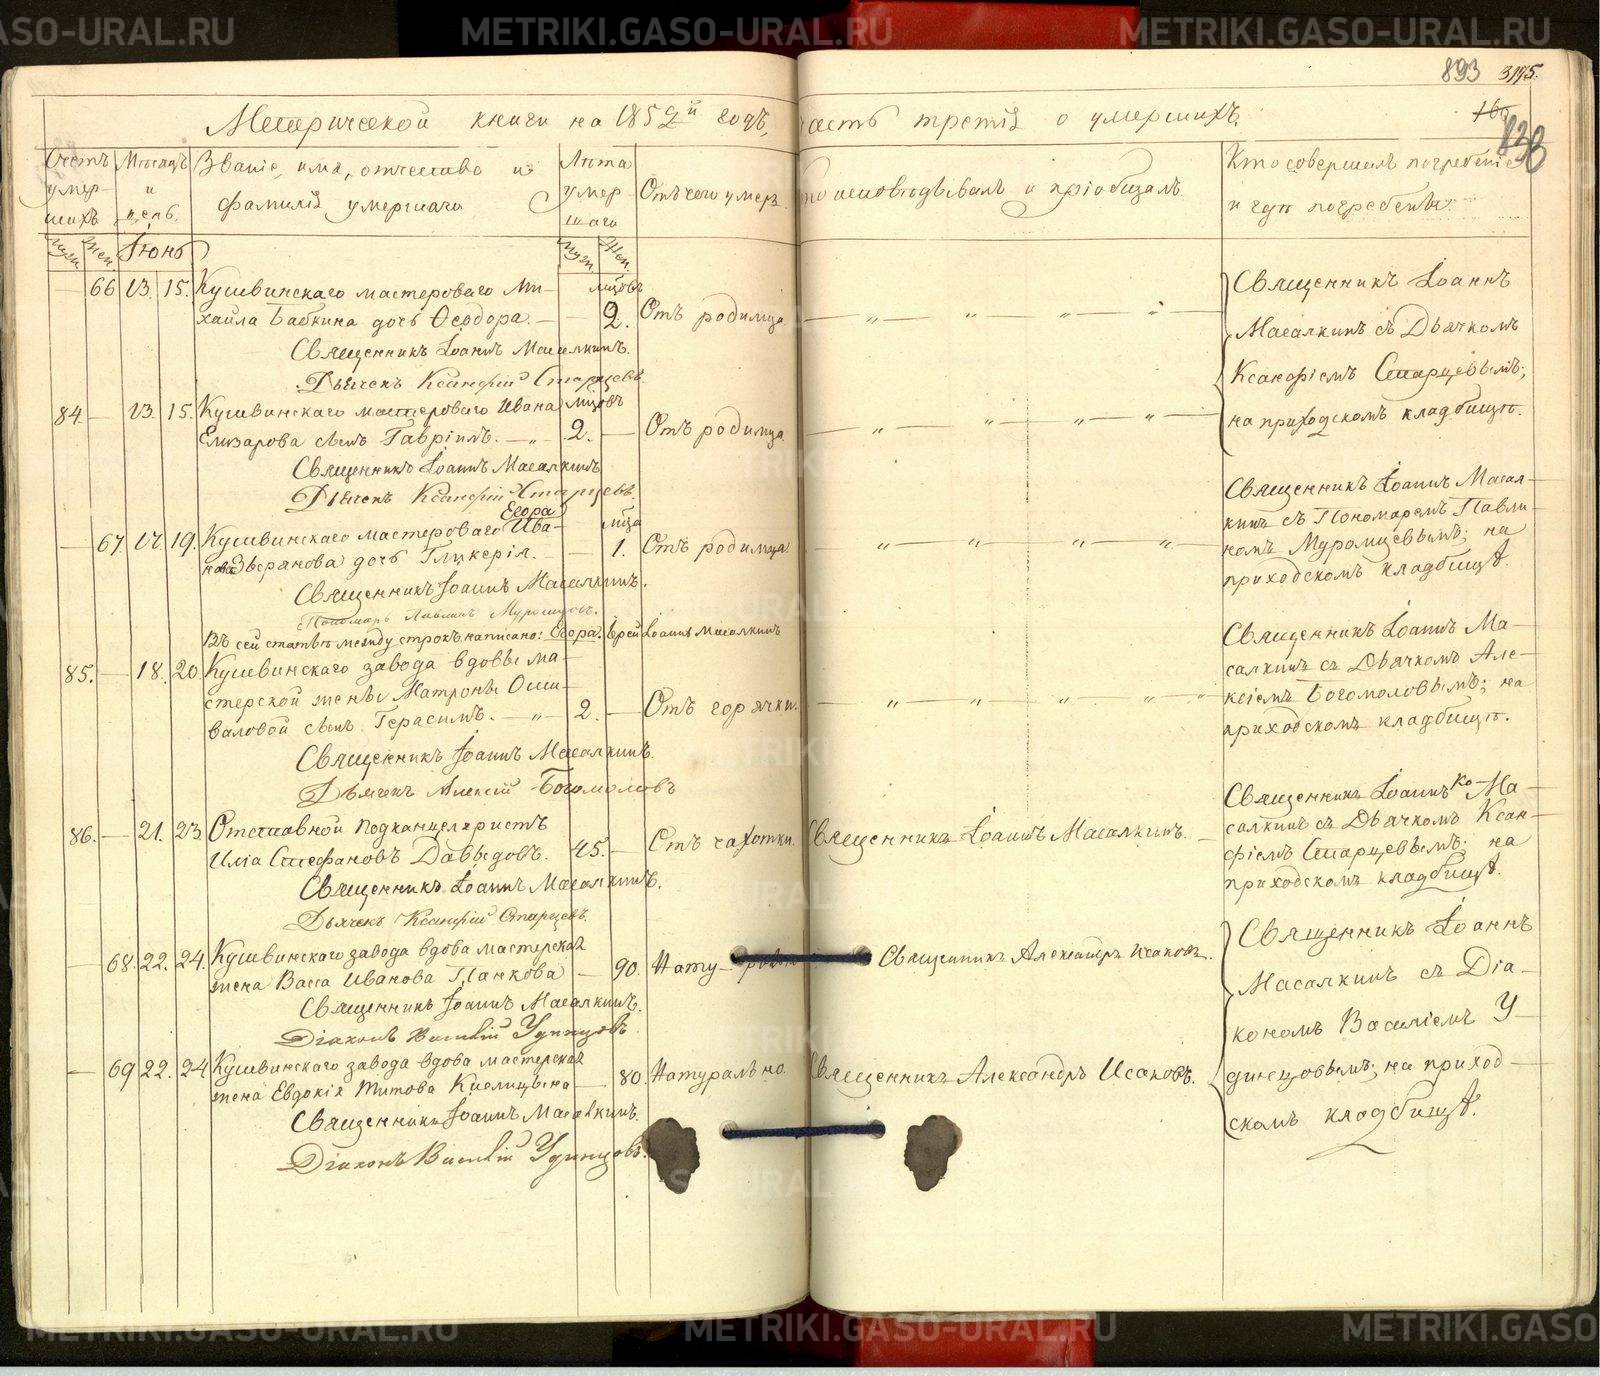 893 3175.
Метрической книги на 1852й годъ, часть третія о умершихъ.
838
Счетъ умер-шихъ
Мѣсяцъ и день.
Званіе, имя, отчество и фамилія умершаго
Лѣта умер-шаго
Отъ чего умеръ
Кто исповѣдывалъ и пріобщалъ.
Кто совершалъ погребеніе и гдѣ погребены.
Муж. Жен. Іюнь Муж. Жен.
66 13. 15. Кушвинскаго мастероваго Ми-
хаила Бабкина дочь Ѳеодора. — мцовъ 2. Отъ родимца
Священникъ Іоаннъ Масалкинъ.
Дьячекъ Ксанфій Старцевъ.
84 — 13. 15. Кушвинскаго мастероваго Ивана
Елизарова сынъ Гавріилъ. — мцовъ 2. — Отъ родимца
Священникъ Іоаннъ Масалкинъ
Дьячекъ Ксанфій Старцевъ.
Священникъ Іоаннъ
Масалкинъ съ Дьячкомъ
Ксанфіемъ Старцевымъ;
на приходскомъ кладбищѣ.
Егора
— 67. 17. 19. Кушвинскаго мастероваго Ива-
нова Зверянова дочь Гликерія. — мца 1. Отъ родимца
Священникъ Іоаннъ Масалкинъ.
Пономарь Павлинъ Муромцовъ.
Въ сей статьѣ между строкъ написано: Егора. Іерей Іоаннъ Масалкинъ
Священникъ Іоаннъ Масал-
кинъ съ Пономаремъ Павли-
номъ Муромцевымъ; на
приходскомъ кладбищѣ.
85. — 18. 20 Кушвинскаго завода вдовы ма-
стерской жены Матроны Оши-
валовой сынъ Герасимъ. — 2. — Отъ горячки.
Священникъ Іоаннъ Масалкинъ.
Дьячекъ Алексій Богомоловъ
Священникъ Іоаннъ Ма-
салкинъ съ Дьячкомъ Але-
ксіемъ Богомоловымъ; на
приходскомъ кладбищѣ.
86. — 21. 23. Отставной подканцеляристъ
Илія Стефановъ Давыдовъ. 45. — Отъ чахотки. Священникъ Іоаннъ Масалкинъ. —
Священникъ Іоаннъ Масалкинъ.
Дьячекъ Ксанфій Старцевъ.
Священникъ Іоаннъ Ма-
салкинъ съ Дьячкомъ Ксан-
фіемъ Старцевымъ; на
приходскомъ кладбищѣ.
— 68. 22. 24. Кушвинскаго завода вдова мастерская
жена Васса Иванова Панкова — 90. Нату- Священникъ Александръ Исаковъ.
Священникъ Іоаннъ Масалкинъ.
Діаконъ Василій Удинцовъ.
— 69 22. 24 Кушвинскаго завода вдова мастерская
жена Евдокія Титова Кислицына — 80. Натурально. Священникъ Александръ Исаковъ.
Священникъ Іоаннъ Масалкинъ.
Діаконъ Василій Удинцовъ.
Священникъ Іоаннъ
Масалкинъ съ Діа-
кономъ Василіемъ У-
динцовымъ; на приход-
скомъ кладбищѣ.
METRIKI.GASO-URAL.RU